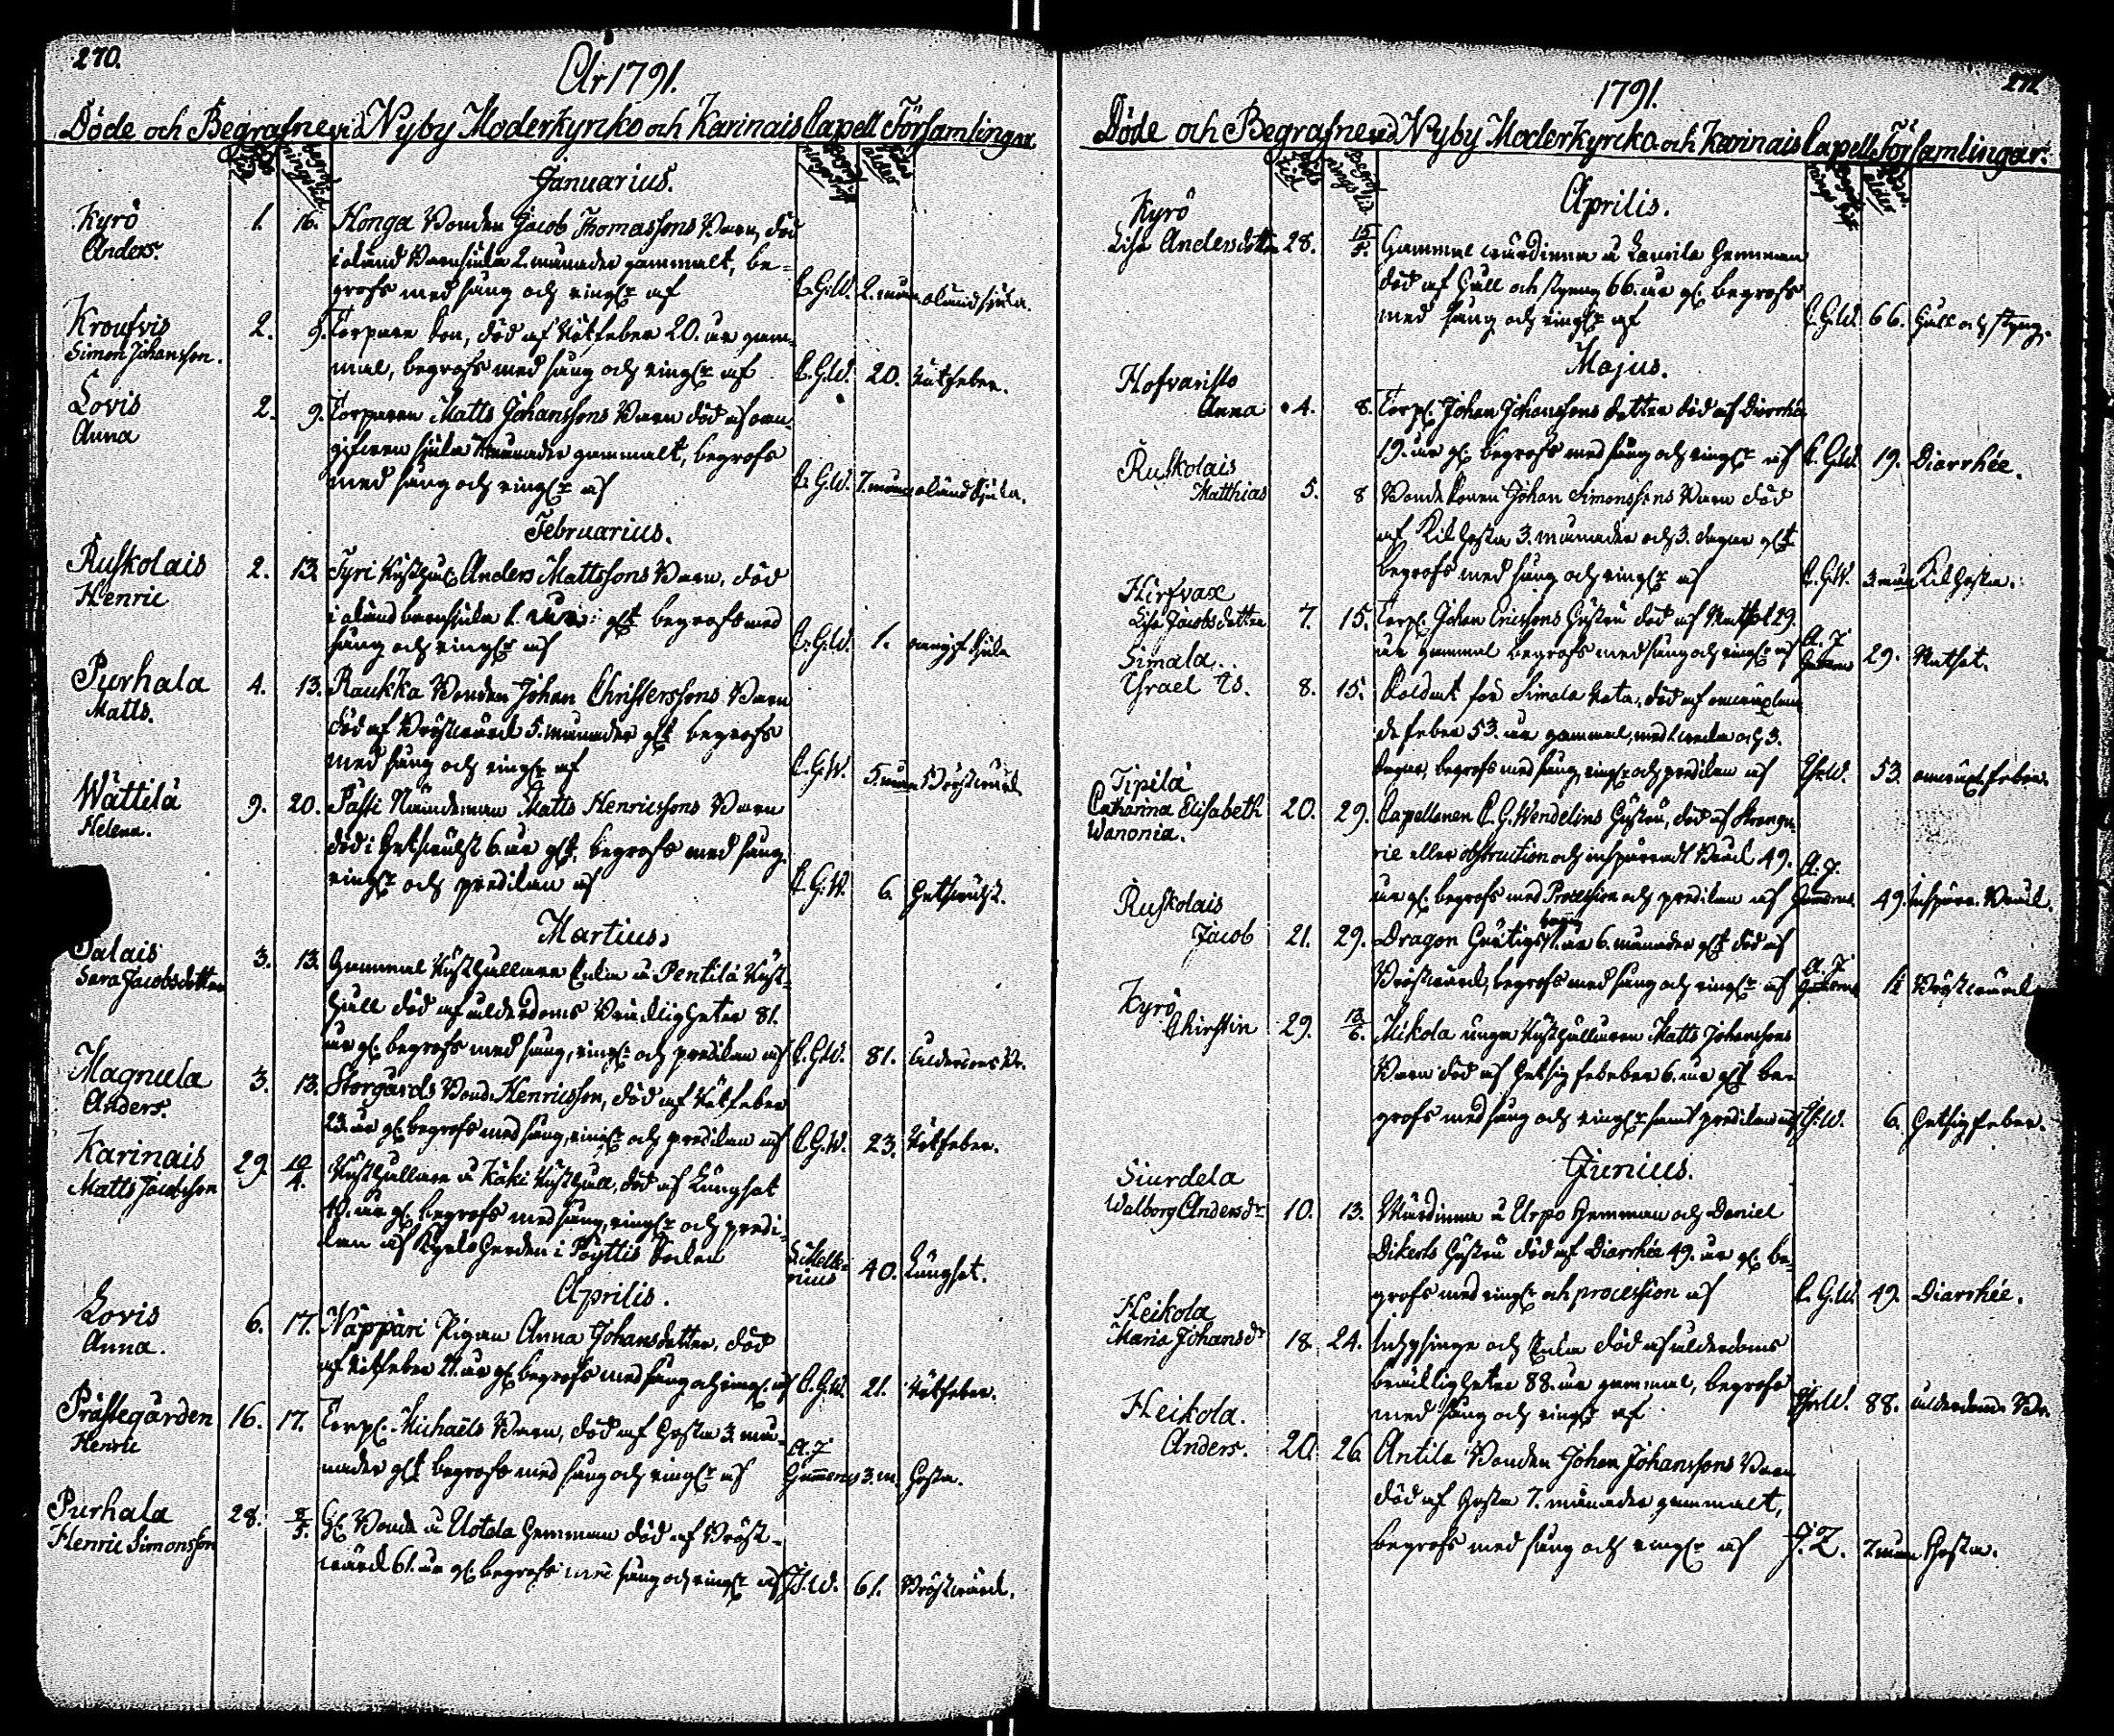 270.
År 1791.
Döde och Begrafne vid Nyby Moderkyrko och Karinais Capell Församlingar
Januarius.
Kyrö 1. 16. Honga Bonden Jacob Thomassons Barn, död
Anders.
i okänd Barnsjuka 2. månader gammalt, be=
grofs med sång och ringn: af C. G. W. 2. mån okänd sjuka.
Kroufvis 2. 9. Torpare Son, död af Rötfeber 20. år gam=
Simon Johansson.
mal, begrofs med sång och ringn: af C. G. W. 20. Rötfeber.
Lovis 2. 9. Torparen Matts Johanssons Barn död af oan=
Anna
gifven sjuka 7 månader gammalt, begrofs
med sång och ringn: af C. G. W. 7. mån okänd Sjuka.
Februarius.
Ruskolais 2. 13. Tyri Rusth: Anders Mattssons Barn, död
Henric
i okänd barnsjuka 1. år glt begrofs med
sång och ringn: af C. G. W. 1. oangif Sjuka
Purhala 4. 13. Raukka Bonden Johan Christerssons Barn
Matts.
död af Bröstvärk 5. månader glt begrofs
med sång och ringn: af C. G. W. 5. mån Bröstvärk
Wättilä 9. 20. Passi Nämdeman Matts Henricssons Barn
Helena.
död i Hetsvulst 6. år glt, begrofs med sång
ringn: och predikan af C. G. W. 6. Hetsvulst.
Martius.
Salais 3. 13. Gammal Rusthållare Enka å Pentilä Rust=
Sara Jacobsdotter
håll död af ålderdoms Bräckligheter 81.
år gl: begrofs med sång, ringn: och predikan af C. G. W. 81. ålderdoms Br.
Magnula 3. 13. Storgårds Bond: Henricsson, död af Rötfeber
Anders.
23. år gl: begrofs med sång, ringn: och predikan af C. G. W. 23. Rötfeber.
Karinais 29. 10/4. Rusthållare å Käki Rusthåll, död af Lungsot
Matts Jacobsson
40. år gl: begrofs med sång, ringn: och predi=
kan af i Pöyttis Socken 40. Lungsot.
Aprilis.
Lovis 6. 17. Näppäri Pigan Anna Johansdotter, död
Anna.
af Rötfeber 21. år gl: begrofs med sång och ringn: af C. G. W. 21. Rötfeber.
Prästegården 16. 17. Torp: Michaels Barn, död af Hosta 3. må=
Henric
nader glt begrofs med sång och ringn: af A. J. Gummerus 3. m. Hosta.
Purhala 28. 8/5. Gl: Bonde å Uotola Hemman död af Bröst=
Henric Simonsson
värk 61. år gl: begrofs med sång och ringn: af 61. Bröstvärk.
271
1791.
Döde och Begrafne vid Nyby Moderkyrcko och Karinais Capell Församlingar.
Aprilis.
Kyrö
Lisa Andersdotter 28. 15/5. Gammal värdinna å Laurila Hemman
död af Håll och styng 66. år gl: begrofs
med sång och ringn: af C. G. W. 66. Håll och styng.
Majus.
Hofvaristo
Anna 4. 8. Torp: Johan Johanssons dotter död af Diarrhé
19. år gl: begrofs med sång och ringn: af C. G. W. 19. Diarrhée.
Ruskolais
Matthias 5. 8 Bonde Sonen Johan Simonssons Barn död
af Kikhosta 3. månader och 3. dagar glt
begrofs med sång och ringn: af C. G. W. 3. mån Kikhosta.
Hirfvax
Lisa Jacobsdotter 7. 15. Torp: Johan Ericssons Hustru död af 29.
år gammal begrofs med sång och ringn: af A. J. 29.
Simala
Israel 8. 15. Soldat för Simala Rota, död af
de feber 53. år gammal, med 1. vecka och 3.
dagar, begrofs med sång, ringn: och predikan af 53. feber.
Tipilä
Catharina Elisabeth 20. 29. Capellanen C. G. Wendelins Hustru, död af
Wanonia.
rie eller obstruction och inspärradt Bråck 49.
år gl: begrofs med Procession och predikan af A. J. Gummerus. 49. inspärr. Bråck.
Ruskolais
Jacob 21. 29. Dragon barn 6. månader glt död af
Bröstvärk, begrofs med sång och ringn: af A. J. Bröstvärk
Kyrö
Chirstin 29. 12/6. Mikola unga Rusthållaren Matts Johanssons
Barn död af Hetsig febeber 6. år glt be
grofs med sång och ringn: samt predikan af 6. Hetsig feber.
Junius.
Siurdela
Walborg Andersdr 10. 13. Värdinna å Urpo Hemman och Daniel
Dikerts Hustru död af Diarrhée 49. år gl: be=
grofs med ringn: och procession af C. G. W. 49. Diarrhée.
Heikola
Maria Johansdr 18. 24. Inhysinge och Enka död af ålderdoms
bräcklighetер 88. år gammal, begrofs
med sång och ringn: af 88. ålderdoms Br.
Heikola.
Anders. 20. 26. Antila Bonden Johan Johanssons Barn
död af Hosta 7. månader gammalt,
begrofs med sång och ringn: af J. Z. 7. mån Hosta.